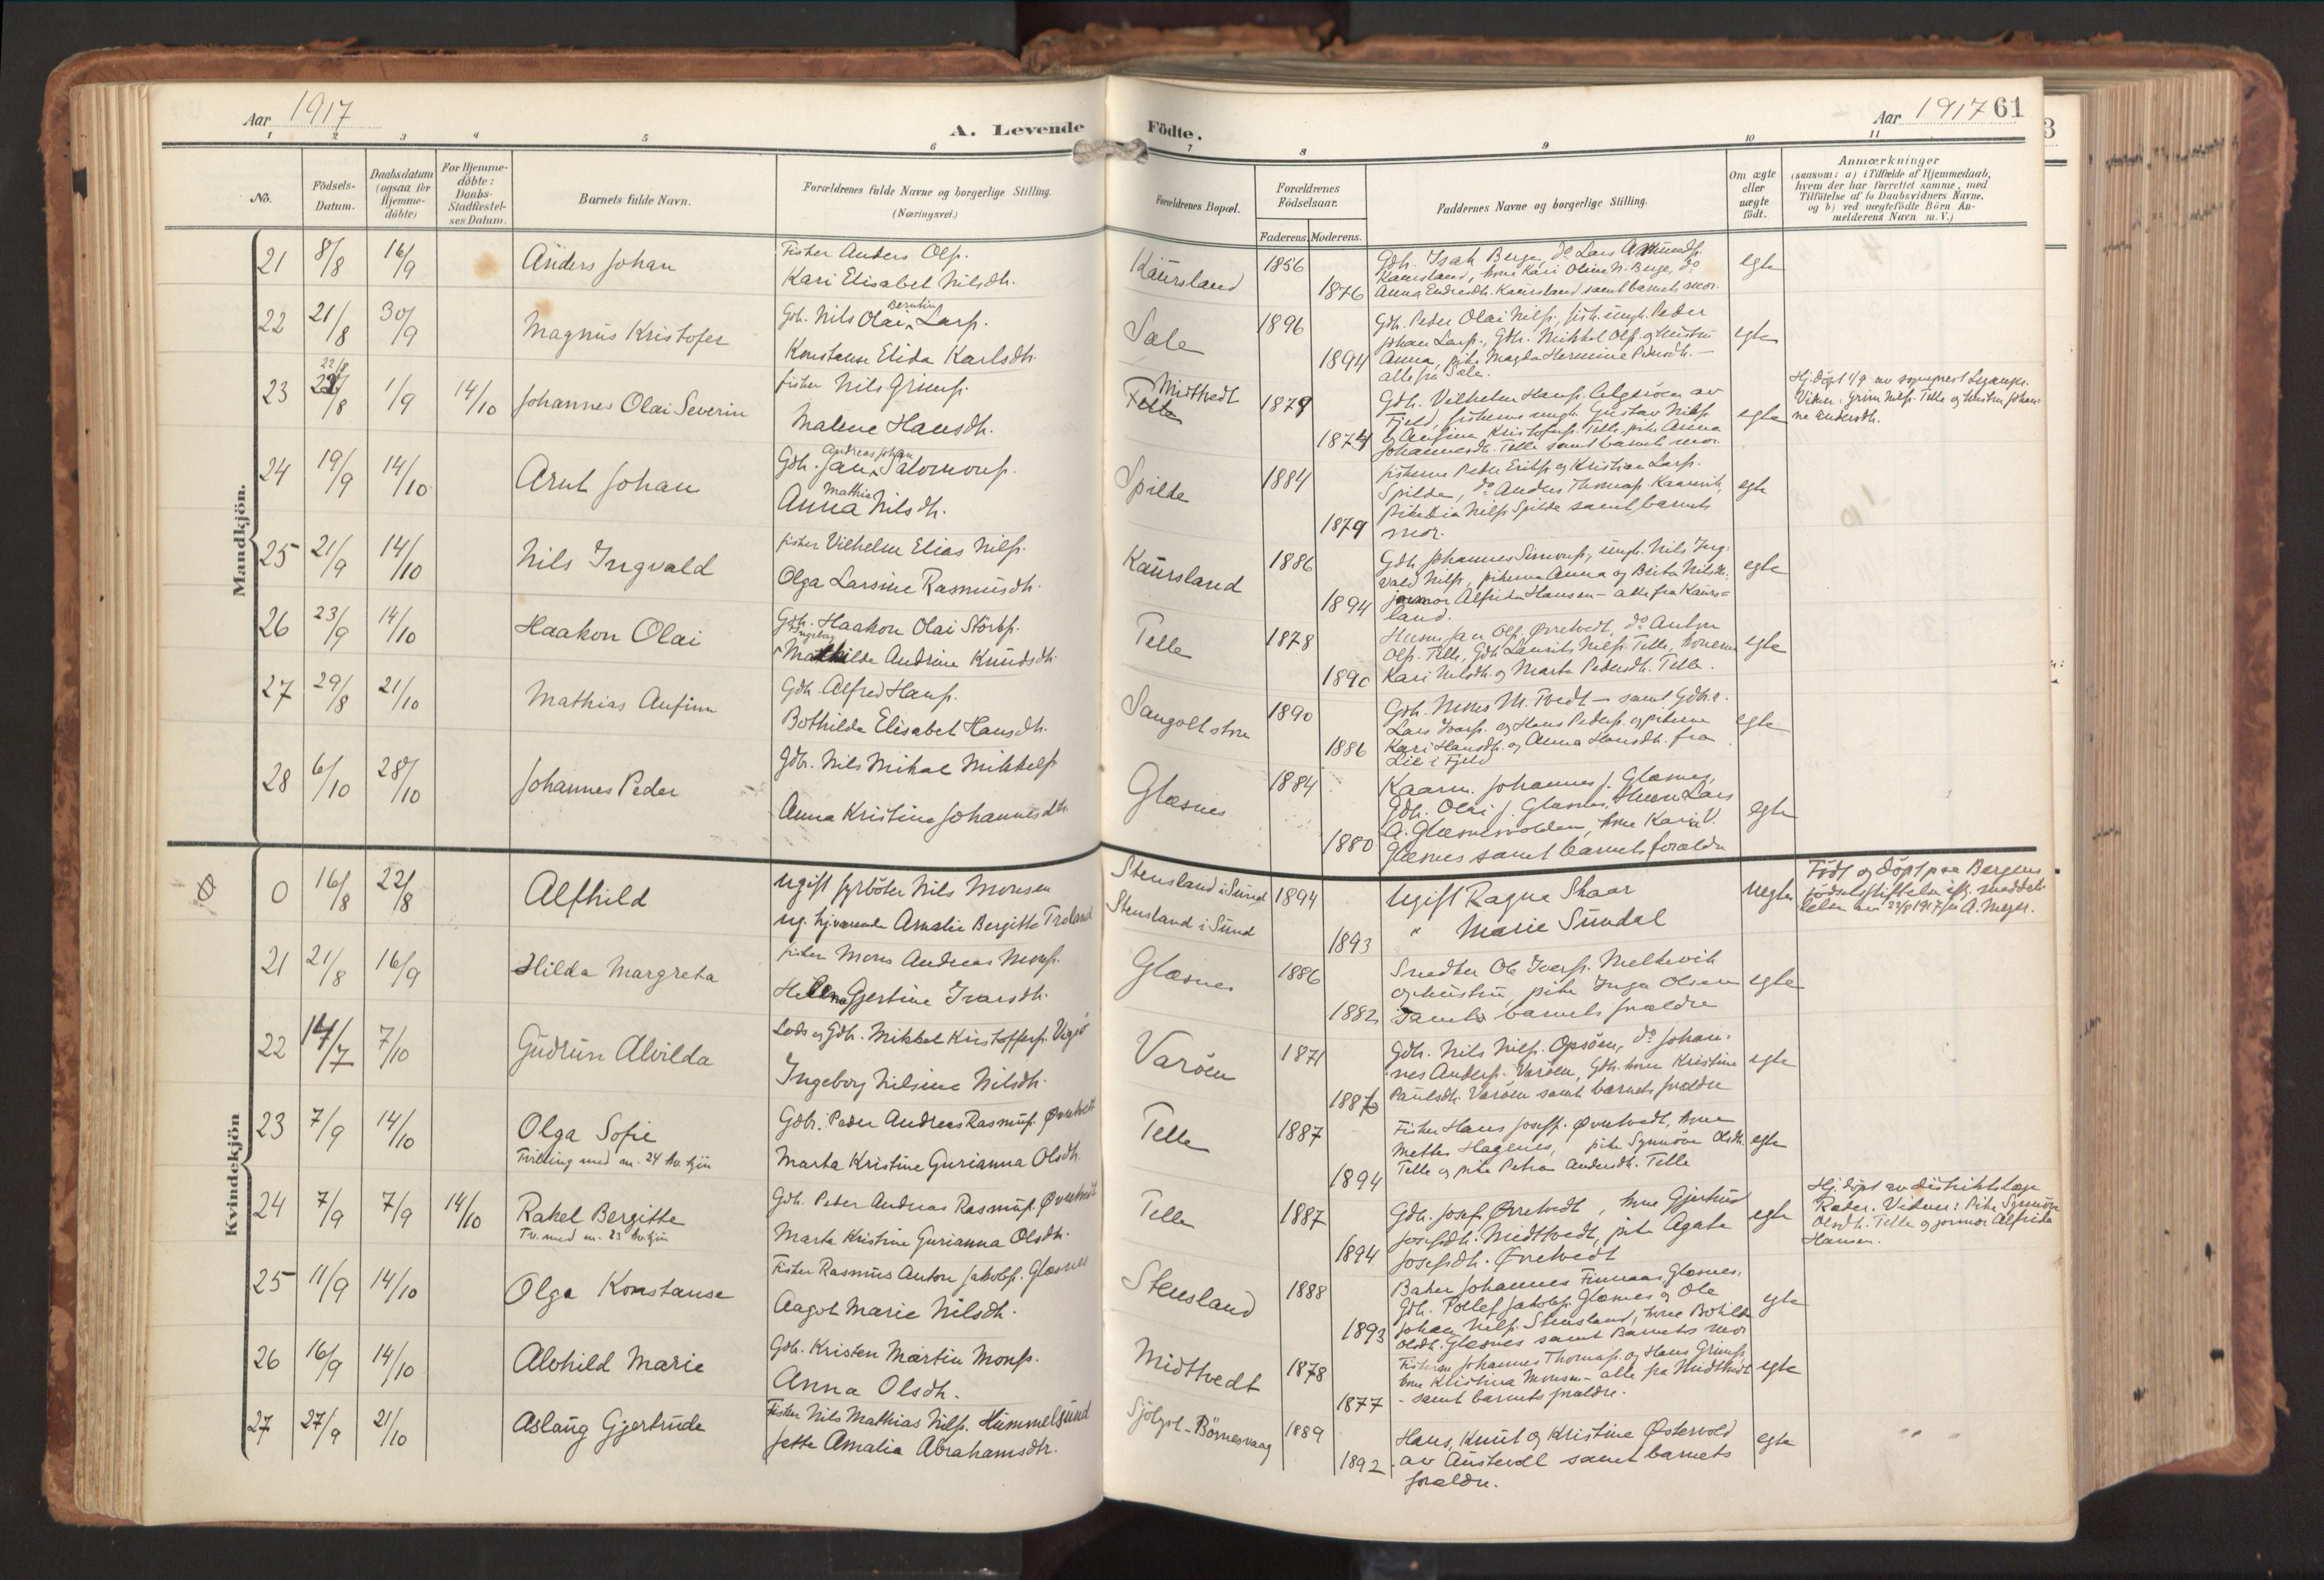 Aar 1917
A. Levende
Födte.
Aar 1917
61
3
1
2
3
4
5
6
7
8
9
10
11
No.
Födsels-
Datum.
Daabsdatum
(ogsaa for
Hjemme-
döbte)
For Hjemme-
döbte:
Daabs-
Stadfæstel-
ses Datum.
Barnets fulde Navn.
Forældrenes fulde Navne og borgerlige Stilling.
(Næringsvei.)
Forældrenes Bopæl.
Forældrenes
Födselsaar.
Faderens.
Moderens.
Faddernes Navne og borgerlige Stilling.
Om ægte
eller
uægte
födt.
Anmærkninger
(saasom: a) i Tilfælde af Hjemmedaab,
hvem der har forrettet samme, med
Tilföielse af to Daabsvidners Navne,
og b) ved uægtefödte Börn An-
melderens Navn m. V.)
Mandkjön.
21 8/8 16/9 Anders Johan
Fisker Anders Ols.
Kari Elisabet Nilsdh.
Kaursland 1856 1876
Gdh. Isak Berge, do Lars Amunds.
Kaursland, kone Kari Oline N. Berge, do
Anna Endresdh. Kaursland samt barnets mor.
egte
22 21/8 30/9 Magnus Kristofer
Gdh. Nils Olai Berntin Lars.
Konstanse Elida Karlsdh.
Sale 1896 1894
Gdh. Peder Olai Nils., fish. ungk. Peder
Johan Lars., Gdh. Mikkel Ols. og hustru
Anna, pike Magda Hermine Pedersdh. —
alle fra Sale.
egte
23 22/8 1/9 14/10 Johannes Olai Severin
fisker Nils Grims.
Malene Hansdh.
Midttvedt
Telle 1879 1874
Gdh. Vilhelm Hans. Algeröen av
Fjeld, fiskerne ungk. Gustav Nils.
og Anfinn Kristofers. Telle, pike Anna
Johannesdh. Telle samt barnets mor.
egte
Hj. döpt 1/9 av sogneprest
Vidner: Grim Nils. Telle og hustru Johan-
ne Andersdh.
24 19/9 14/10 Arnt Johan
Gdh. Jan Andreas Johan Salomons.
Anna Mathie Nilsdh.
Spilde 1884 1879
fiskerne Peder Eriks. og Kristian Lars.
Spilde, do Anders Thomas. Kaarevik,
pike Nils. Spilde samt barnets
mor.
egte
25 21/9 14/10 Nils Ingvald
fisker Vilhelm Elias Nils.
Olga Larsine Rasmusdh.
Kaursland 1886 1894
Gdh. Johannes Simons., ungk. Nils Ing-
vald Nils., pikerne Anna og Brita Nilsdh.,
jormor Alfrida Hansen — alle fra Kaurs=
land.
egte
26 23/9 14/10 Haakon Olai
Gdh. Haakon Olai Störks.
Ingeborg
Mathilde Andrine Knudsdh.
Telle 1878 1890
Husm. Jan Ols. Övretvedt, do Anton
Ols. Telle, Gdh. Laurits Nils. Telle, konerne
Kari Nilsdh. og Marta Pedersdh. Telle.
egte
27 29/8 21/10 Mathias Anfinn
Gdh. Alfred Hans.
Bothilde Elisabet Hansdh.
Sangoltstrø 1890 1886
Gdh. Mons M. Tvedt — samt Gdh.r.
Lars Ivars. og Hans Peders. og pikerne
Kari Hansdh. og Anna Hansdh. fra
Lie i Fjeld
egte
28 6/10 28/10 Johannes Peder
Gdb. Nils Mikal Mikkels.
Anna Kristine Johannesdh.
Glæsnes 1884 1880
Kaarm. Johannes J. Glæsnes,
Gdh. Olai J. Glæsnes, Husm. Lars
A. Glæsnesvolden, kone Kari V.
Glæsnes samt barnets foreldre
egte
Kvindekjön
0 16/8 22/8 Alfhild
Ugift fyrböter Nils Monsen
Ug. hj.værende Amalie Bergitte Troland
Stensland i Sund
Stensland i Sund 1894 1893
Ugift Ragna Skaar
" Marie Sundal
uegte
Födt og döpt paa Bergens
födselsstiftelse ifg. meddel-
lelse av 22/8 1917 fra A. Meyer.
21 21/8 16/9 Hilda Margreta
fisker Mons Andreas Mons.
Helena Gjertine Ivarsdh.
Glæsnes 1886 1882
Snedker Ole Ivars. Melkevik
og hustru, pike Inga Olsen
samt barnets foreldre
egte
22 14/7 7/10 Gudrun Alvilda
Lods og Gdh. Mikkel Kristoffers. Vigsö
Ingeborg Nilsine Nilsdh.
Varöen 1871 1886
Gdh. Nils Nils. Opsöen, do Johan-
nes Anders. Varöen, Gdh. kone Kristine
Paulsdh. Varöen samt barnets foreldre
egte
23 7/9 14/10 Olga Sofie
Tvilling med nr. 24 kv. kjön
Gdb. Peder Andreas Rasmus. Övretvedt
Marta Kristine Gurianna Olsdh.
Telle 1887 1894
Fisker Hans Josefs. Övretvedt, kone
Mette Hagenes, pike Synnöve Olsdh.
Telle og pike Petra Andersdh. Telle
egte
24 7/9 7/9 14/10 Rakel Bergitte
Tv. med nr. 23 kv. kjön
Gdh. Peder Andreas Rasmus. Övretvedt
Marta Kristine Gurianna Olsdh.
Telle 1887 1894
Gdh. Josef Övretvedt, kone Gjertrud
Josefsdh. Midttvedt, pike Agate
Josefsdh. Övretvedt
egte
Hj. döpt av distriktslæge
Roder. Vidner: Pike Synnöve
Olsdh. Telle og jormor Alfrida
Hansen.
25 11/9 14/10 Olga Konstanse
Fisker Rasmus Anton Jakobs. Glæsnes
Aagot Marie Nilsdh.
Stensland 1888 1893
Baker Johannes Finnaas Glæsnes,
Gdh. Tollef Jakobs. Glæsnes og Ole
Johan Nils. Stensland, kone Bothilde
Olsdh. Glæsnes samt Barnets mor
egte
26 16/9 14/10 Alvhild Marie
Gdh. Kristen Martin Mons.
Anna Olsdh.
Midttvedt 1878 1877
Fiskerne Johannes Thomas. og Hans Grims.
kone Kristina Monsen — alle fra Midttvedt
- samt barnets foreldre.
egte
27 27/9 21/10 Aslaug Gjertrude
Fisker Nils Mathias Nils. Hummelsund
Jette Amalia Abrahamsdtr.
Sjölyst - Börnesvaag 1889 1892
Hans, Knut og Kristine Østervold
av Austevoll samt barnets
foreldre.
egte